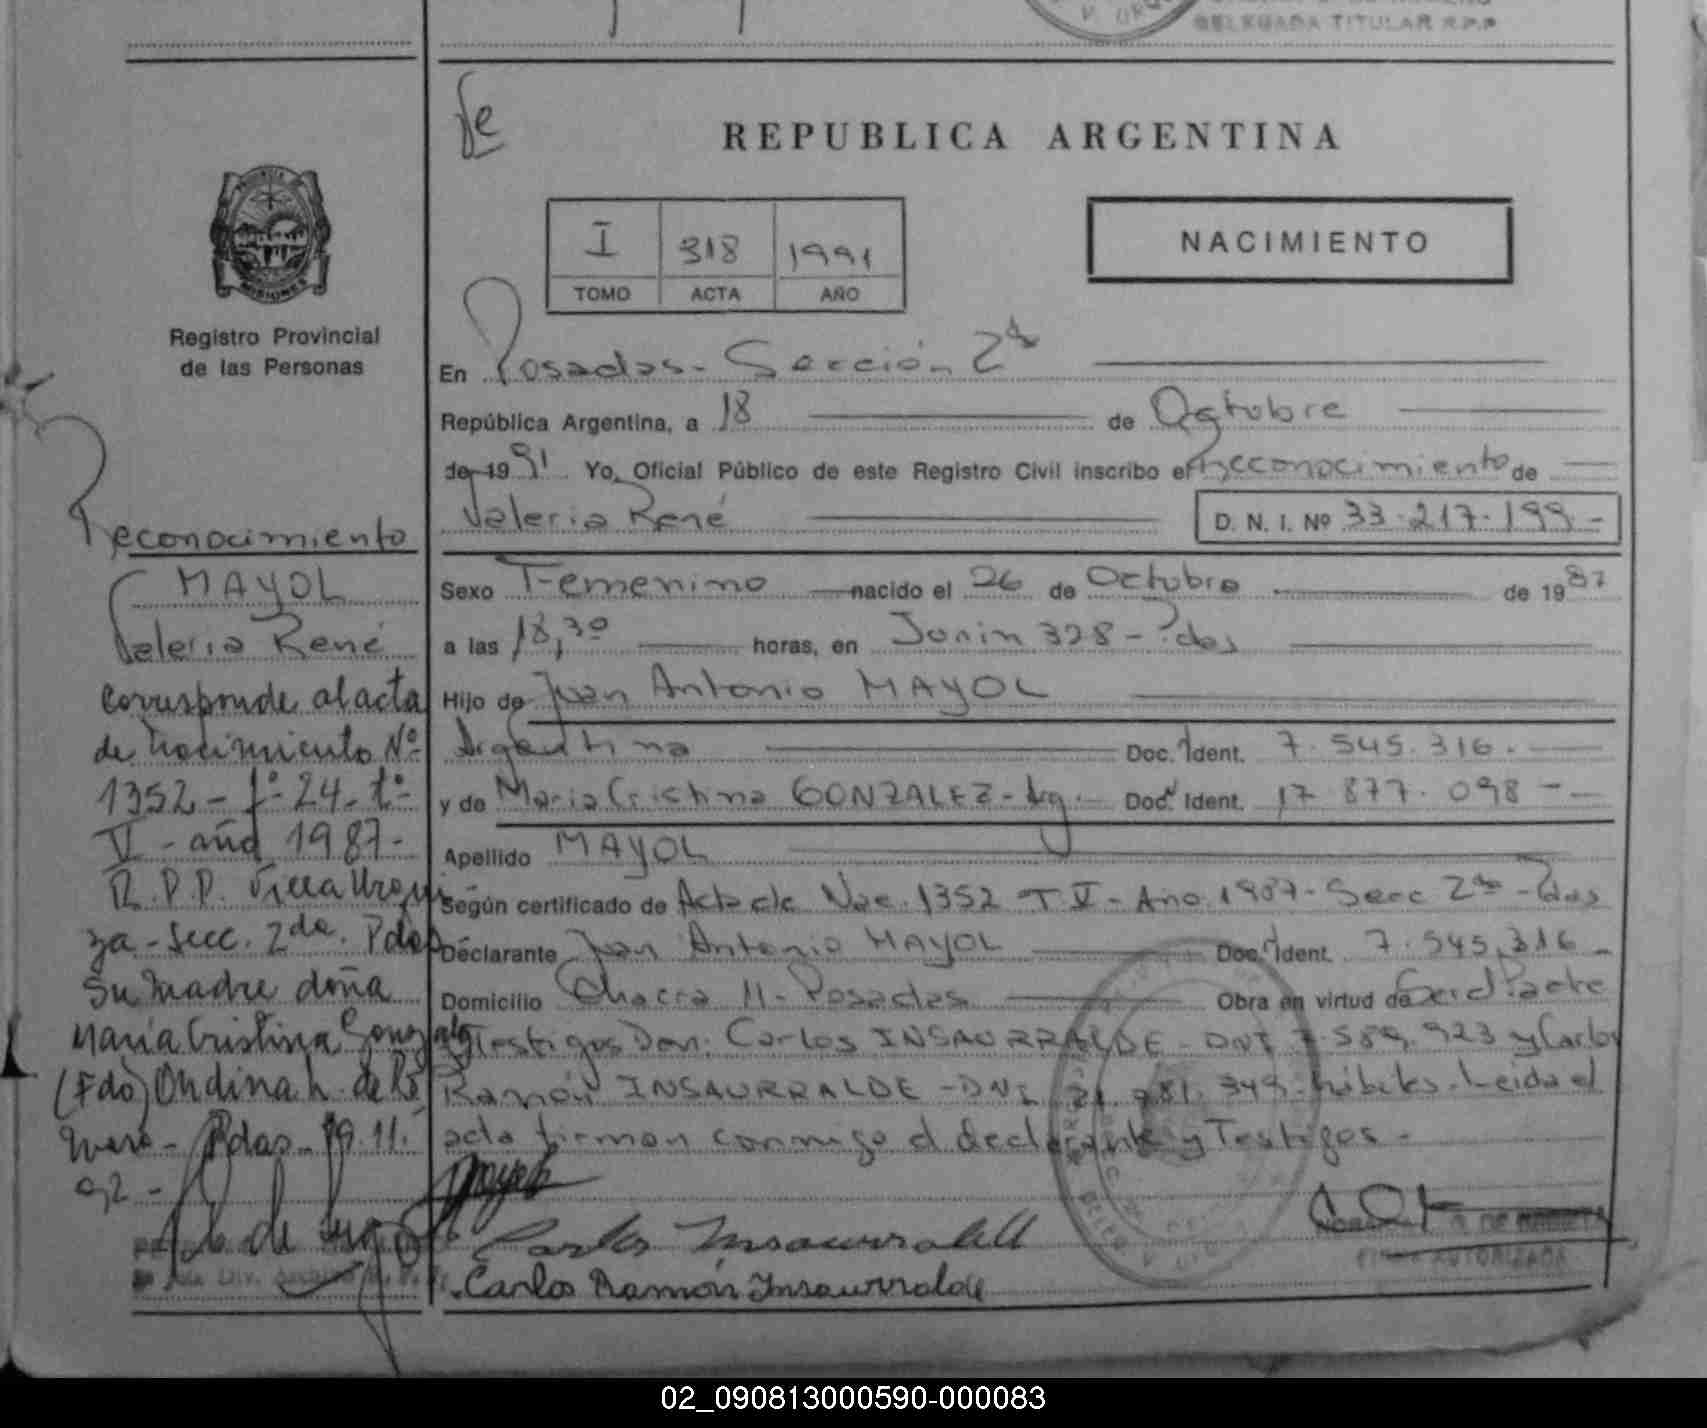 DELEGADA TITULAR R.P.P
REPUBLICA ARGENTINA
I 318 1991
TOMO ACTA AÑO
NACIMIENTO
MISIONES
Registro Provincial
de las Personas
En Posadas - Sección 2da
República Argentina, a 18 de Octubre
de 1991 Yo, Oficial Público de este Registro Civil inscribo el Reconocimiento de
Valeria René D. N. I. Nº 33.217.199 -
Sexo Femenino nacido el 26 de Octubre de 1987
a las 18,30 horas, en Junin 328 - Pdas
Hijo de Juan Antonio MAYOL
Argentina Doc. Ident. 7.545.316.
y de Maria Cristina GONZALEZ - Arg. Doc. Ident. 17.877.098 -
Apellido MAYOL
Según certificado de Acta de Nac. 1352 T V - Año 1987 - Secc 2da - Pdas
Declarante Juan Antonio MAYOL Doc. Ident. 7.545.316 -
Domicilio Chacra 11 - Posadas Obra en virtud de Ser el Padre
Testigos Don: Carlos INSAURRALDE - DNI 7.589.923 y Carlos
Ramón INSAURRALDE - DNI 21.981.349 - hábiles. Leida el
acta firman conmigo el declarante y Testigos -
Carlos Insaurralde
Carlos Ramón Insaurralde
FIRMA AUTORIZADA
Reconocimiento
MAYOL
Valeria René
Corresponde al acta
de Nacimiento Nº
1352 - fº 24 - tº
V - año 1987 -
R.P.P. Villa Urqui
za - Secc. 2da. Pdas
Su madre doña
María Cristina Gonzalez
(Fdo) Ondina L. de Ri
vero - Pdas - 19.11.
92 -
02_090813000590-000083